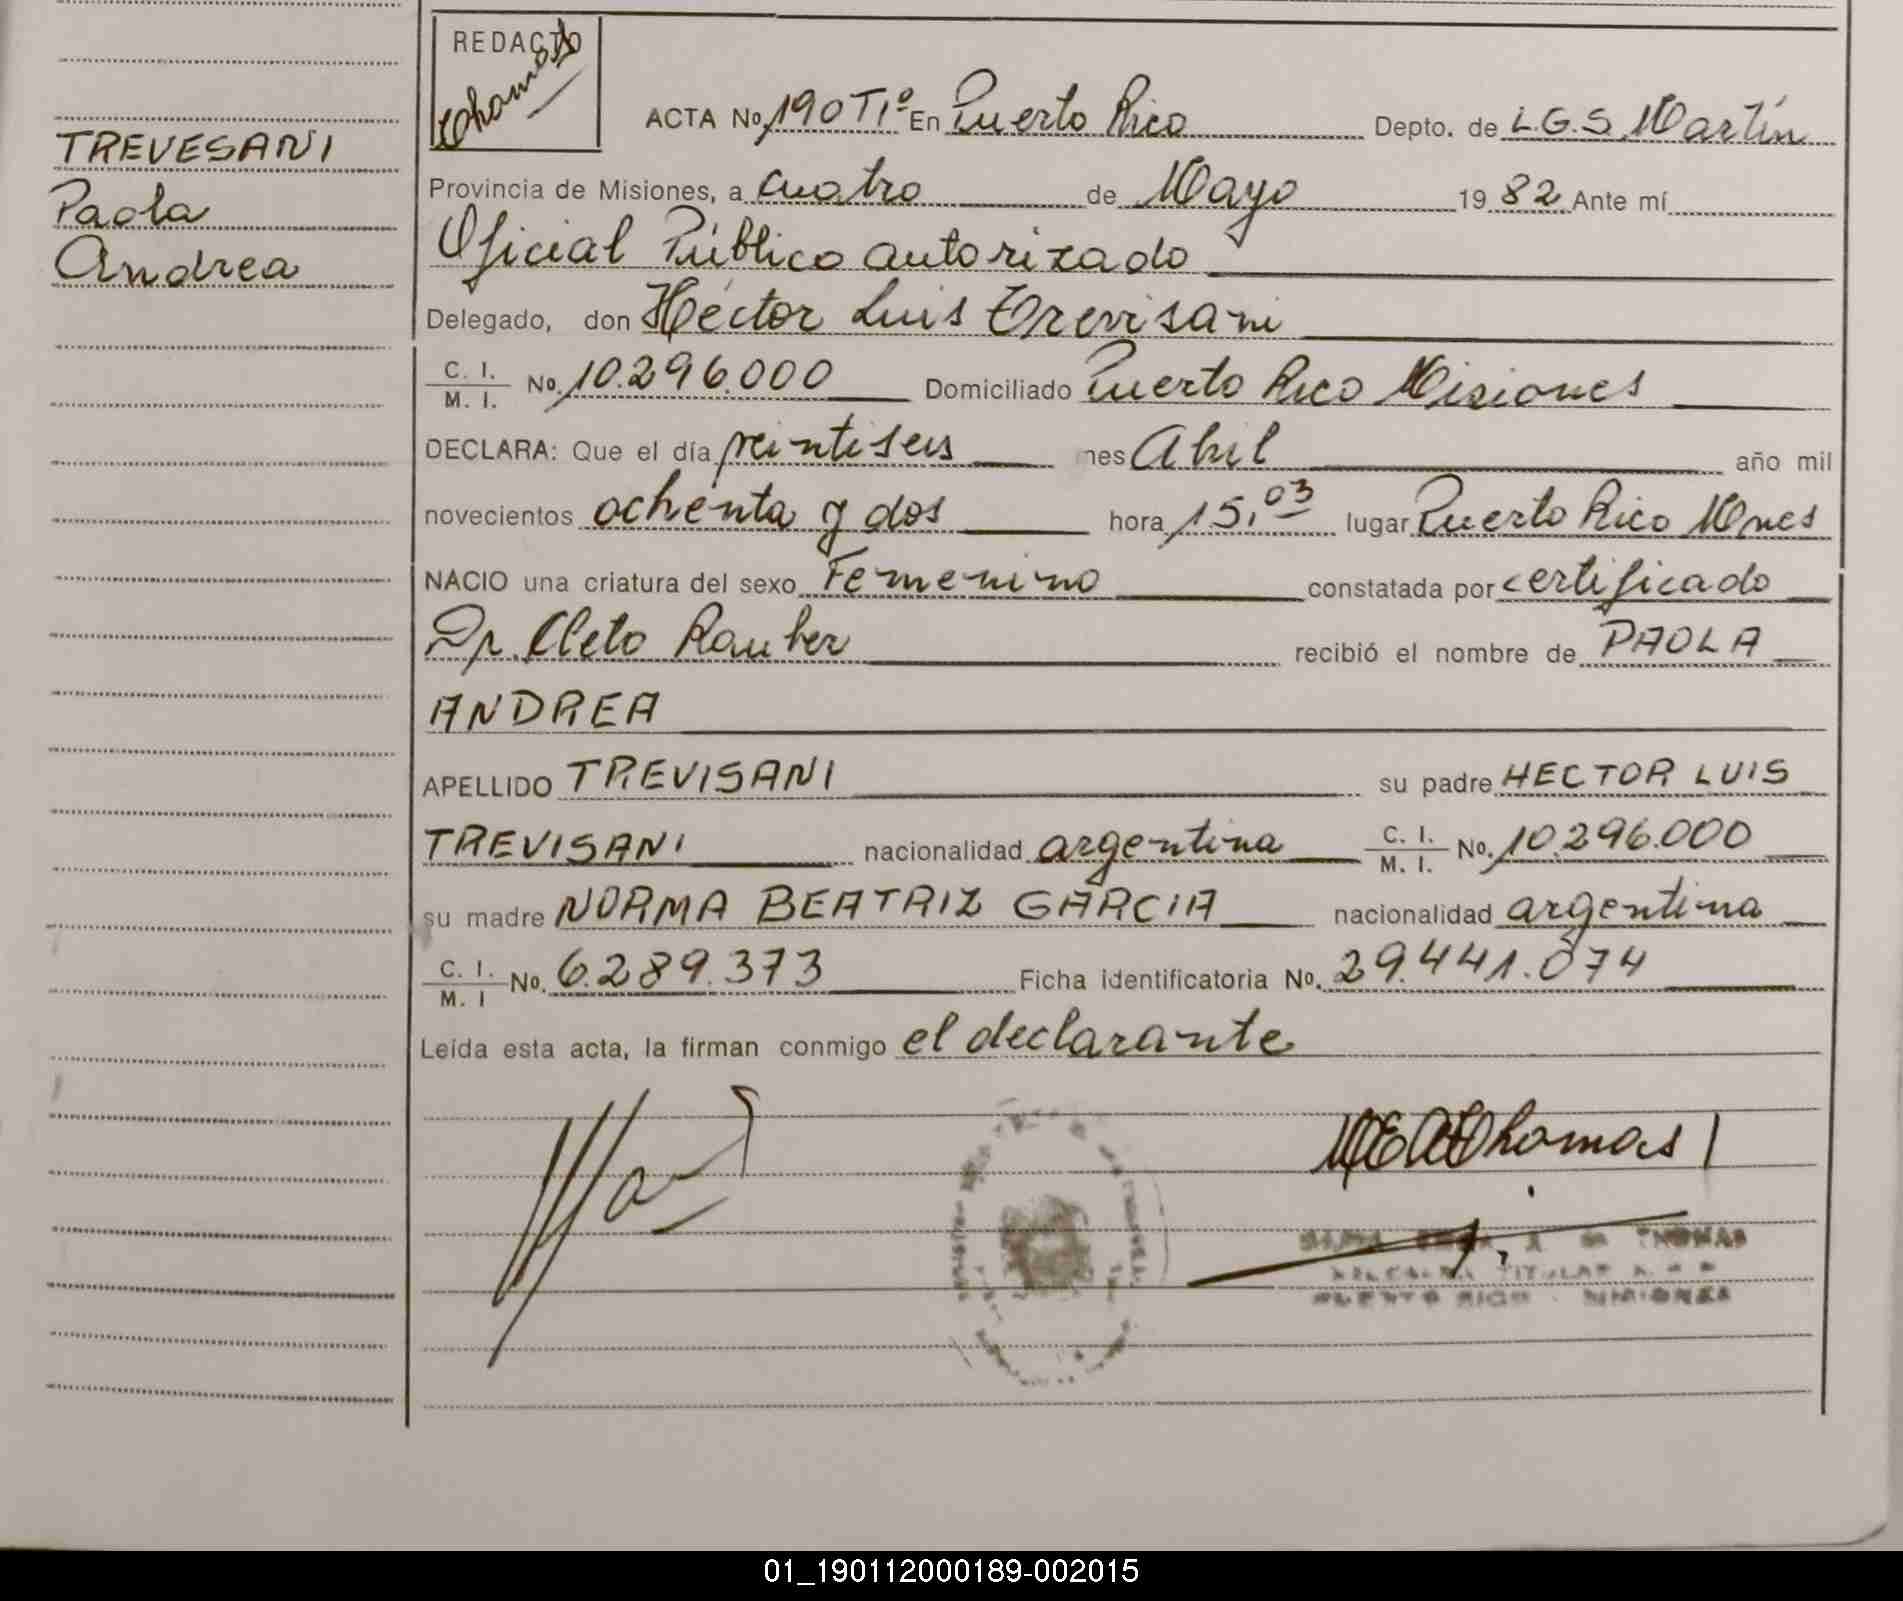 TREVESANI
Paola
Andrea
REDACTO
Thomas
ACTA No. 190 T1º En Puerto Rico Depto. de L.G.S. Martín
Provincia de Misiones, a cuatro de Mayo 1982 Ante mí
Oficial Público autorizado
Delegado, don Héctor Luis Trevisani
C. I. / M. I. No. 10.296.000 Domiciliado Puerto Rico Misiones
DECLARA: Que el día veintiseis mes Abril año mil
novecientos ochenta y dos hora 15,03 lugar Puerto Rico Mnes
NACIO una criatura del sexo Femenino constatada por certificado
Dr. Cleto Rauber recibió el nombre de PAOLA
ANDREA
APELLIDO TREVISANI su padre HECTOR LUIS
TREVISANI nacionalidad argentina C. I. / M. I. No. 10.296.000
su madre NORMA BEATRIZ GARCIA nacionalidad argentina
C. I. / M. I No. 6.289.373 Ficha identificatoria No. 29.441.074
Leída esta acta, la firman conmigo el declarante
Thomas
THOMAS
TITULAR
PUERTO RICO - MISIONES
01_190112000189-002015